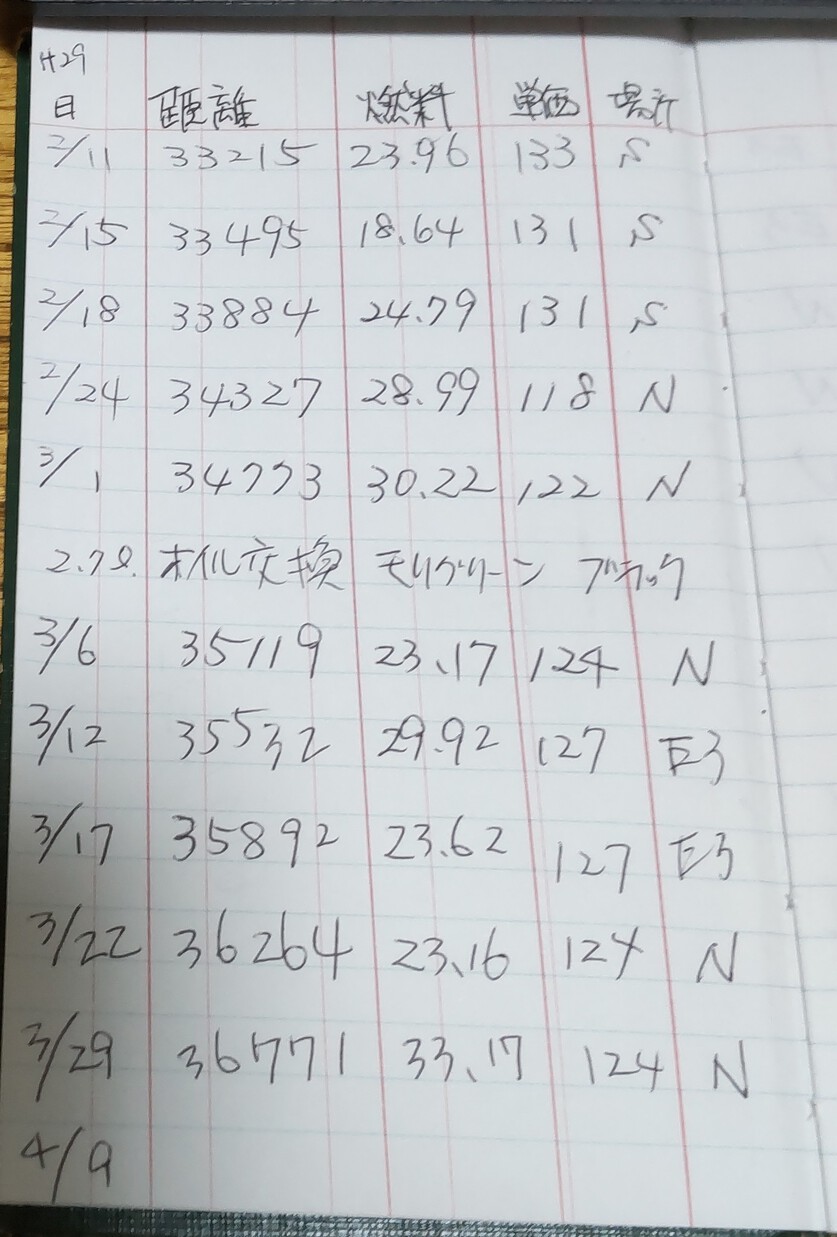 H29
日 距離 燃料 単価 場所
2/11 33215 23.96 133 S
2/15 33495 18.64 131 S
2/18 33884 24.79 131 S
2/24 34327 28.99 118 N
3/1 34773 30.22 122 N
2.7ℓ. オイル交換 モリグリーン ブラック
3/6 35119 23.17 124 N
3/12 35532 29.92 127 E3
3/17 35892 23.62 127 E3
3/22 36264 23.16 124 N
3/29 36771 33.17 124 N
4/9